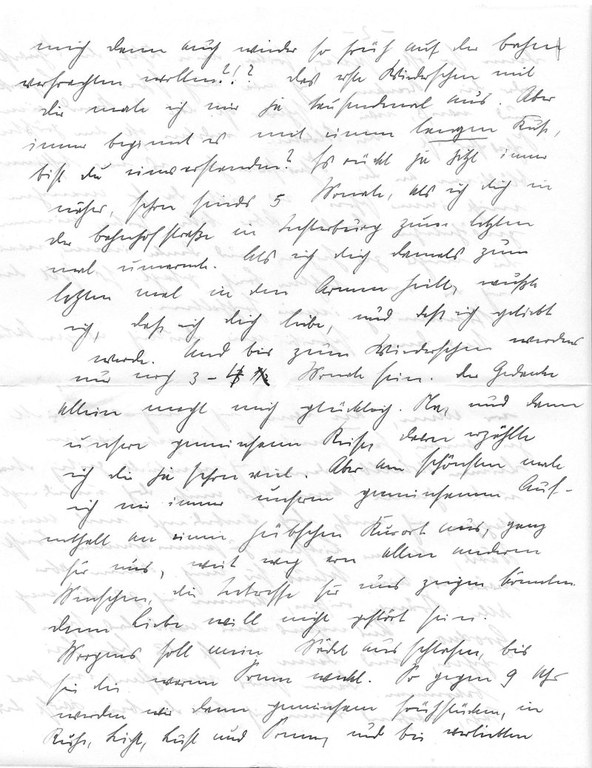 mich dann auch wieder so früh auf der bahn
verfrachten wollen?!? das erste Wiedersehen mit
dir male ich mir ja tausendmal aus. Aber
immer beginnt es mit einem langen Kuß,
bist du einverstanden? Es rückt ja jetzt immer
näher, schon sinds 5 Monate, als ich dich in
der bahnhofstraße in zum letzten
mal umarmte. Als ich dich damals zum
letzten mal in den Armen hielt, wußte
ich, daß ich dich liebe, und daß ich geliebt
werde. Und bis zum Wiedersehen werden
nur noch 3 - 4 Monate sein. der Gedanke
allein macht mich glücklich. Na, und dann
unsere gemeinsame Reise, davon erzählte
ich dir ja schon viel. Aber am schönsten male
ich mir immer unseren gemeinsamen Auf-
enthalt an einem hübschen Kurort aus, ganz
für uns, weit weg von allen anderen
Menschen, die Interesse für uns zeigen könnten
denn Liebe will nicht gestört sein.
Morgens soll mein Mädel ausschlafen, bis
sie die warme Sonne weckt. So gegen 9 Uhr
werden wir dann gemeinsam frühstücken, in
Ruhe, Licht, Luft und Sonne, und bei verliebten